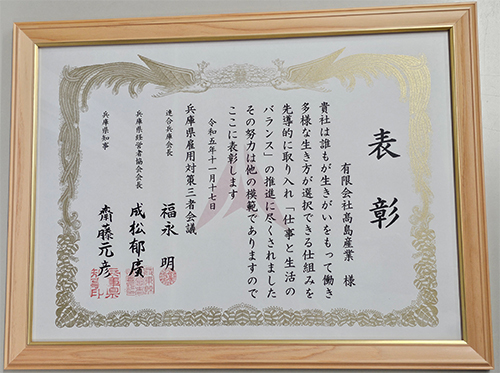 表彰
有限会社髙島産業 様
貴社は誰もが生きがいをもって働き
多様な生き方が選択できる仕組みを
先導的に取り入れ「仕事と生活の
バランス」の推進に尽くされました
その努力は他の模範でありますので
ここに表彰します
令和五年十一月十七日
兵庫県雇用対策三者会議
連合兵庫会長 福永 明
兵庫県経営者協会会長 成松郁廣
兵庫県知事 齋藤元彦